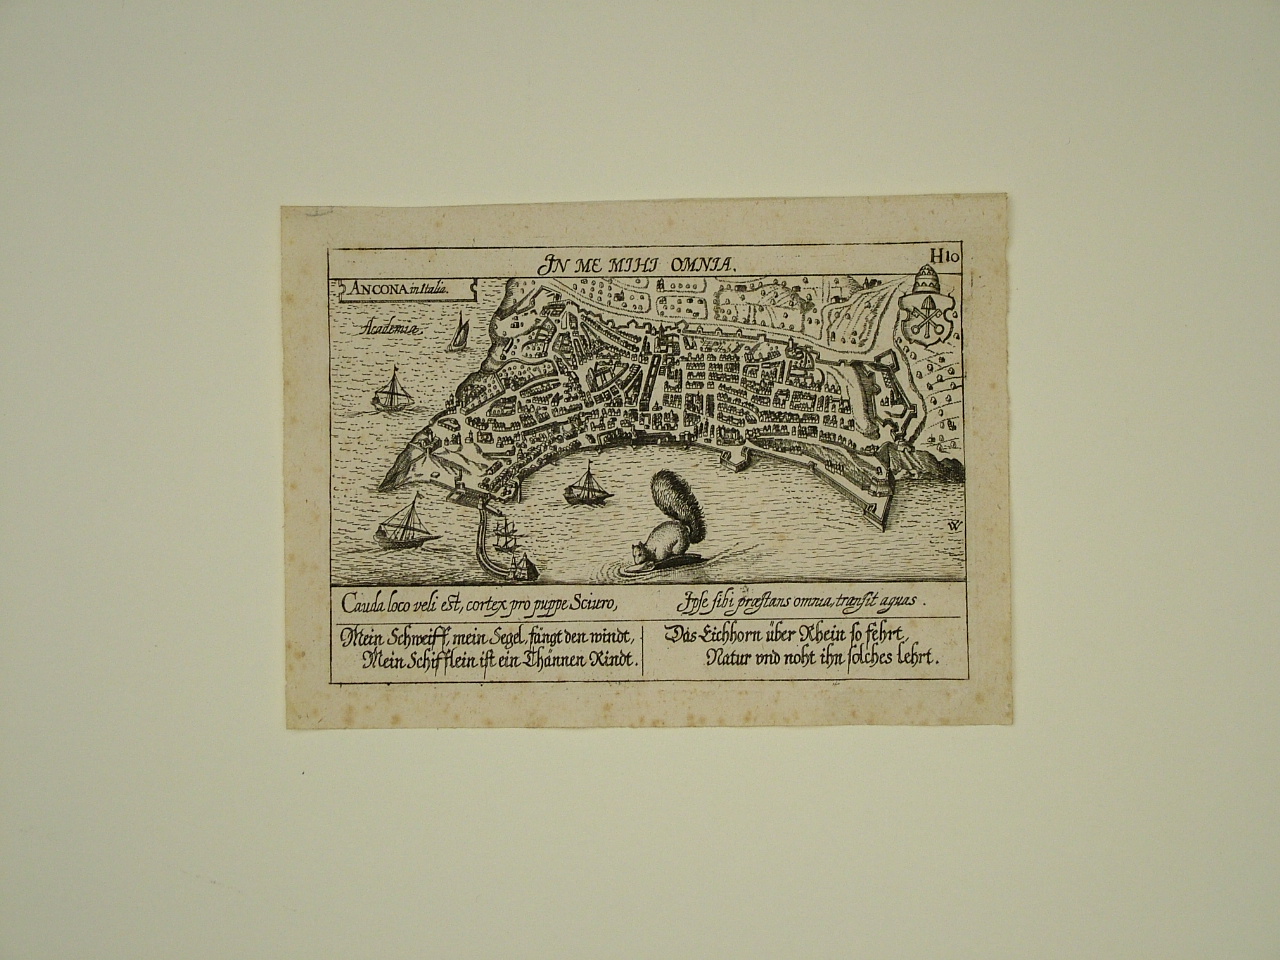 IN ME MIHI OMNIA.
H10
ANCONA in Italia.
Academiæ
W
Cauda loco veli est, cortex pro puppe Sciuro,
Ipse sibi præstans omnia, transit aquas.
Mein Schweiff, mein Segel, fängt den windt,
Mein Schifflein ist ein Thännen Rindt.
Das Eichhorn über Rhein so fehrt,
Natur vnd noht ihn solches lehrt.